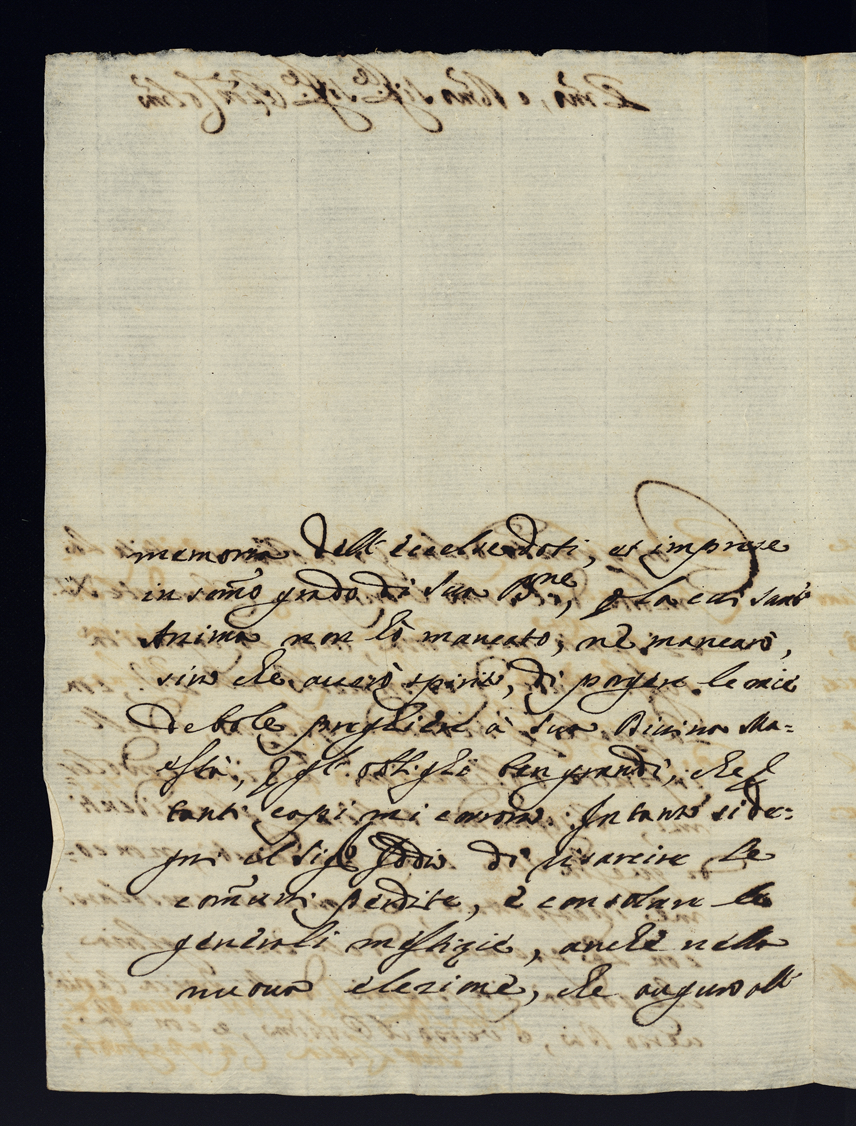 memoria dell'eccelse doti, et imprese
in som̃o grado di Sua Bne, p la cui santa
Anima non hò mancato, nè mancarò,
sin che averò spirito, di porgere le mie
debole preghiere à Sua Divina Ma=
està, p gl'oblighi ben grandi, che p
tanti capi mi corrono. Intanto si de=
gni il Sigr Iddio di risarcire le
com̃uni perdite, è consolare le
generali mestizie, anche nella
nuova elezione, che auguro all'